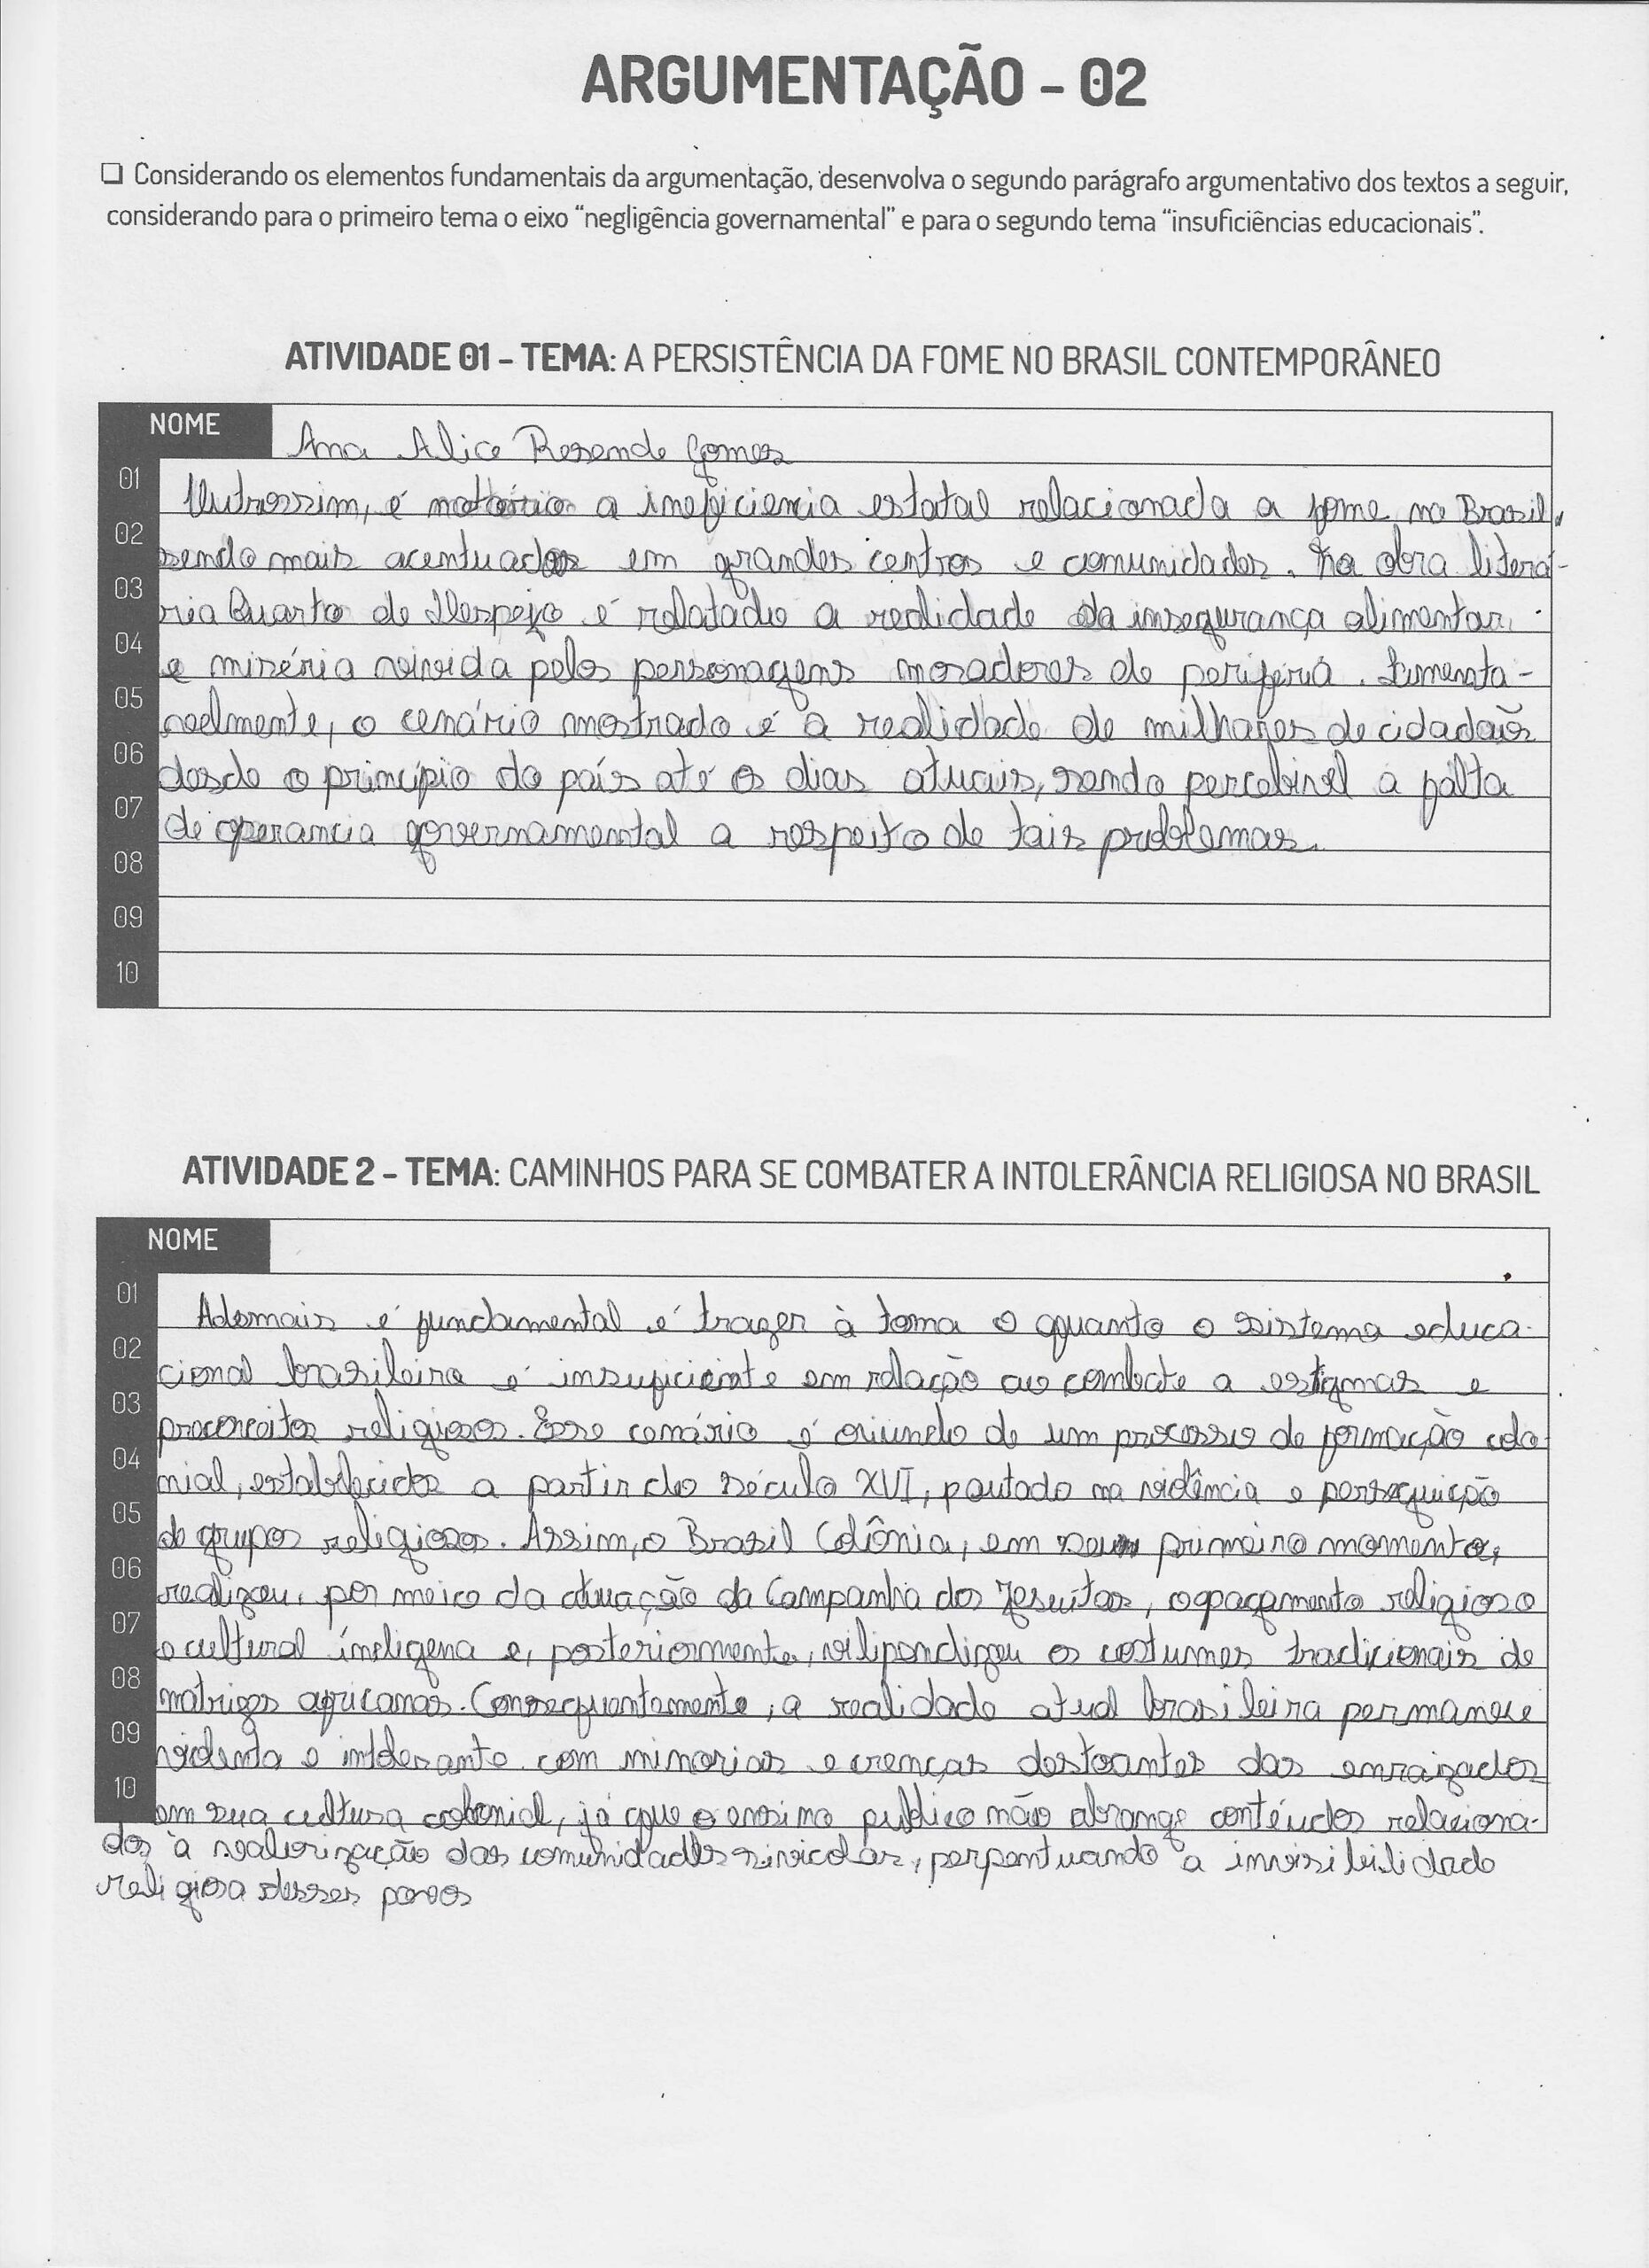 ARGUMENTAÇÃO - 02
❑ Considerando os elementos fundamentais da argumentação, desenvolva o segundo parágrafo argumentativo dos textos a seguir,
considerando para o primeiro tema o eixo "negligência governamental" e para o segundo tema "insuficiências educacionais".
ATIVIDADE 01 - TEMA: A PERSISTÊNCIA DA FOME NO BRASIL CONTEMPORÂNEO
NOME Ana Alice Resende Gomes
01 Outrossim, é notório a ineficiencia estatal relacionada a fome no Brasil,
02 sendo mais acentuados em grandes centros e comunidades. Na obra literá-
03 ria Quarto de Despejo é relatado a realidade da insegurança alimentar
04 e miséria vivida pelos personagens moradores de periferia.
05 velmente, o cenário mostrado é a realidade de milhares de cidadãos
06 desde o princípio do país até os dias atuais, sendo percebivel a falta
07 de operancia governamental a respeito de tais problemas.
08
09
10
ATIVIDADE 2 - TEMA: CAMINHOS PARA SE COMBATER A INTOLERÂNCIA RELIGIOSA NO BRASIL
NOME
01 Ademais é fundamental é trazer à tona o quanto o sistema educa-
02 cional brasileiro é insuficiente em relação ao combate a estigmas e
03 preconceitos religiosos. Esse cenário é oriundo de um processo de formação colo-
04 nial, estabelecido a partir do século XVI, pautado na violência e perseguição
05 de grupos religiosos. Assim, o Brasil Colônia, em seu primeiro momento,
06 realizou, por meio da atuação da Campanha dos Jesuítas, o apagamento religioso
07 e cultural índigena e, posteriormente, vilipendizou os costumes tradicionais de
08 matrizes africanas. Consequentemente, a realidade atual brasileira permanece
09 violenta e intolerante com minorias e crenças destoantes das enraizados
10 em sua cultura colonial, já que o ensino público não abrange conteúdos relaciona-
dos à valorização das comunidades silvícolas, perpentuando a invisibilidade
religiosa desses povos